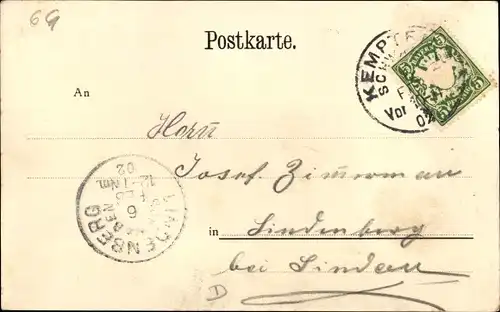 69
Postkarte.
KEMPTE
SCHW
F
Vor
02
BAYERN
5 5
5 5
An
Herrn
Josef Zimmerman
in Lindenberg
bei Lindau
LINDENBERG
6
FEB
12-1 Nm.
02
D